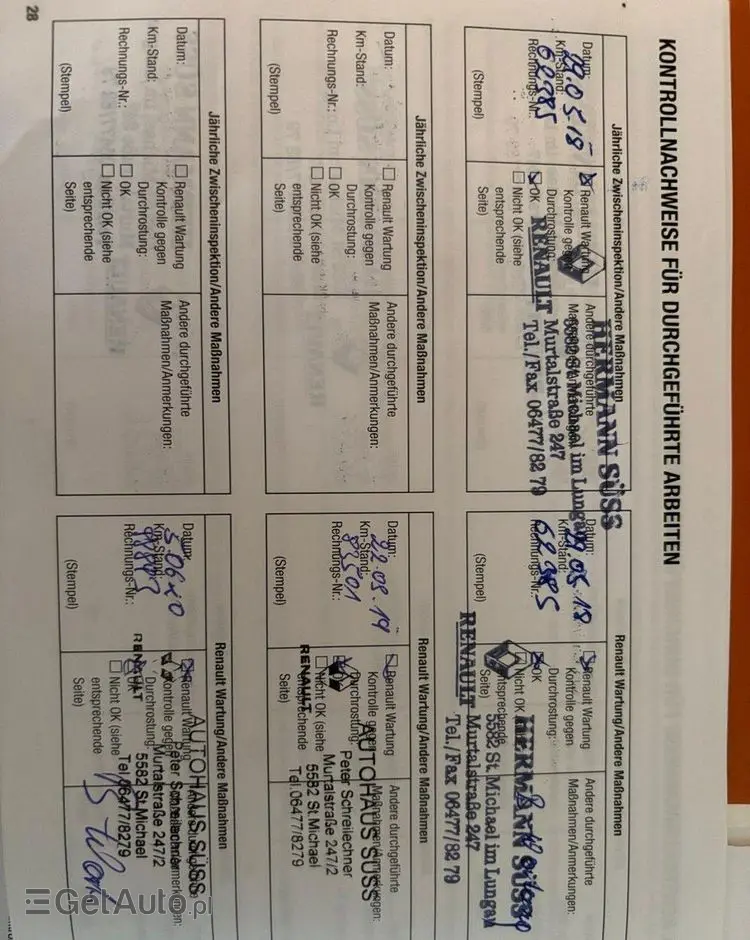 KONTROLLNACHWEISE FÜR DURCHGEFÜHRTE ARBEITEN
Jährliche Zwischeninspektion/Andere Maßnahmen
Datum: 29.05.18
Km-Stand: 62985
Rechnungs-Nr.:
(Stempel)
Renault Wartung
Kontrolle gegen
Durchrostung:
OK
Nicht OK (siehe
entsprechende
Seite)
Andere durchgeführte
Maßnahmen/Anmerkungen:
HERMANN SÜSS
5582 St. Michael im Lungau
Murtalstraße 247
Tel./Fax 06477/82 79
RENAULT
Renault Wartung/Andere Maßnahmen
Datum: 29.05.18
Km-Stand: 62985
Rechnungs-Nr.:
(Stempel)
Renault Wartung
Kontrolle gegen
Durchrostung:
OK
Nicht OK
entsprechende
Seite)
Andere durchgeführte
Maßnahmen/Anmerkungen:
HERMANN SÜSS
5582 St. Michael im Lungau
Murtalstraße 247
Tel./Fax 06477/82 79
RENAULT
Jährliche Zwischeninspektion/Andere Maßnahmen
Datum:
Km-Stand:
Rechnungs-Nr.:
(Stempel)
Renault Wartung
Kontrolle gegen
Durchrostung:
OK
Nicht OK (siehe
entsprechende
Seite)
Andere durchgeführte
Maßnahmen/Anmerkungen:
Renault Wartung/Andere Maßnahmen
Datum: 22.03.19
Km-Stand: 83501
Rechnungs-Nr.:
(Stempel)
Renault Wartung
Kontrolle gegen
Durchrostung:
OK
Nicht OK (siehe
entsprechende
Seite)
Andere durchgeführte
Maßnahmen/Anmerkungen:
AUTOHAUS SÜSS
Peter Schreilechner
Murtalstraße 247/2
5582 St.Michael
Tel.06477/8279
RENAULT
Jährliche Zwischeninspektion/Andere Maßnahmen
Datum:
Km-Stand:
Rechnungs-Nr.:
(Stempel)
Renault Wartung
Kontrolle gegen
Durchrostung:
OK
Nicht OK (siehe
entsprechende
Seite)
Andere durchgeführte
Maßnahmen/Anmerkungen:
Renault Wartung/Andere Maßnahmen
Datum:
Km-Stand:
Rechnungs-Nr.:
(Stempel)
Renault Wartung
Kontrolle gegen
Durchrostung:
Nicht OK (siehe
entsprechende
Seite)
AUTOHAUS SÜSS
Peter Schreilechner
Murtalstraße 247/2
5582 St.Michael
Tel.06477/8279
RENAULT
28
GetAuto.pl